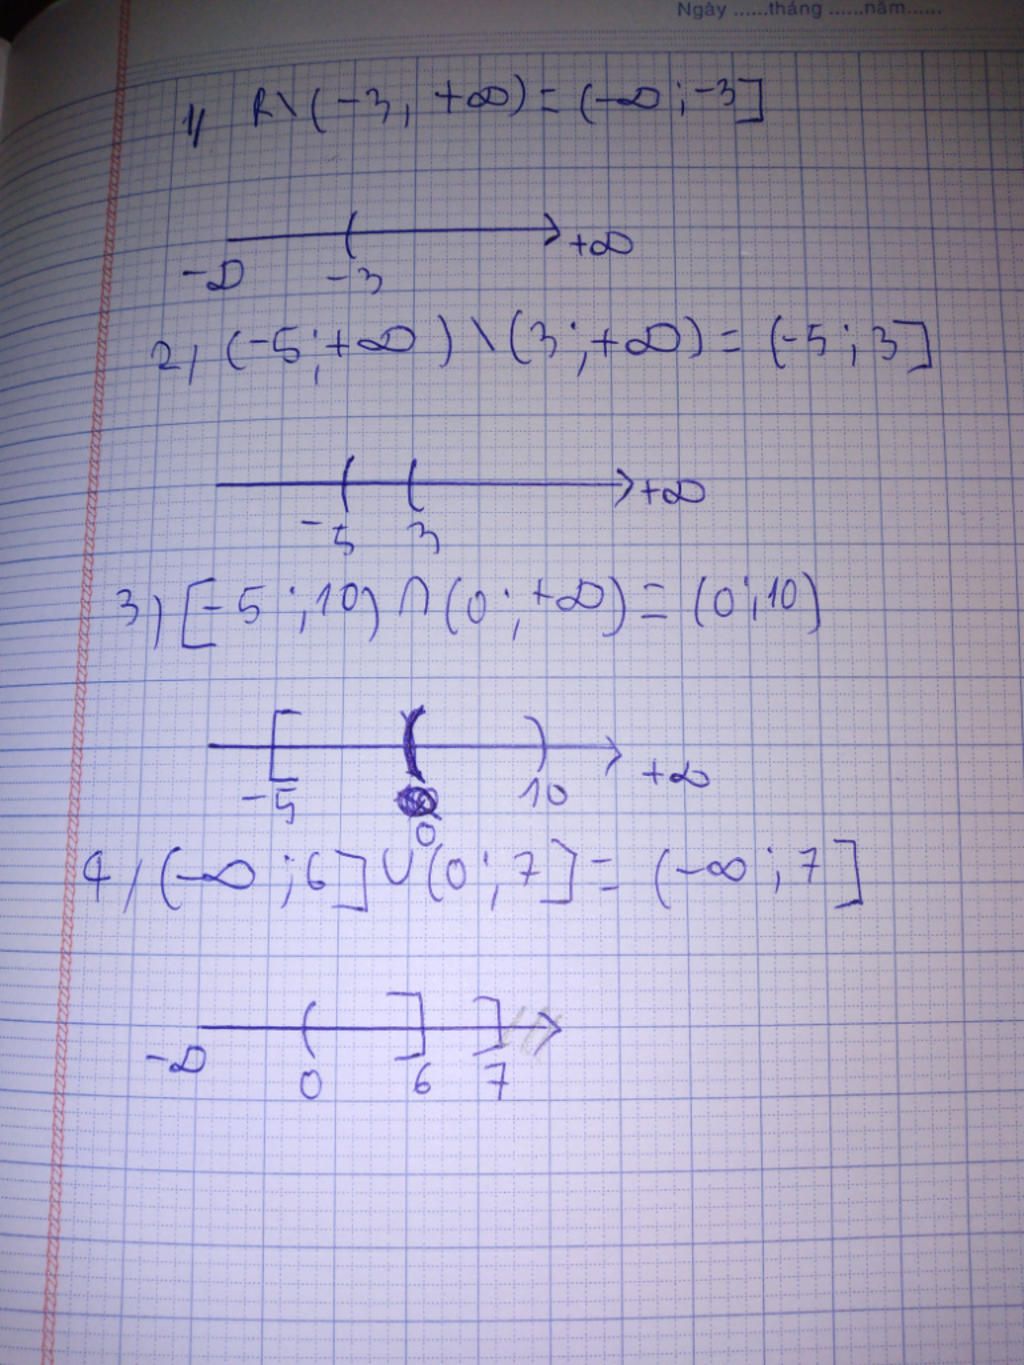 Ngày ......tháng ......năm......
1/ R\(-3; +∞) = (-∞; -3]
-∞ -3 +∞
2/ (-5; +∞) \ (3; +∞) = (-5; 3]
-5 3 +∞
3) [-5; 10) ∩ (0; +∞) = (0; 10)
-5 0 10 +∞
4/ (-∞; 6] ∪ (0; 7] = (-∞; 7]
-∞ 0 6 7